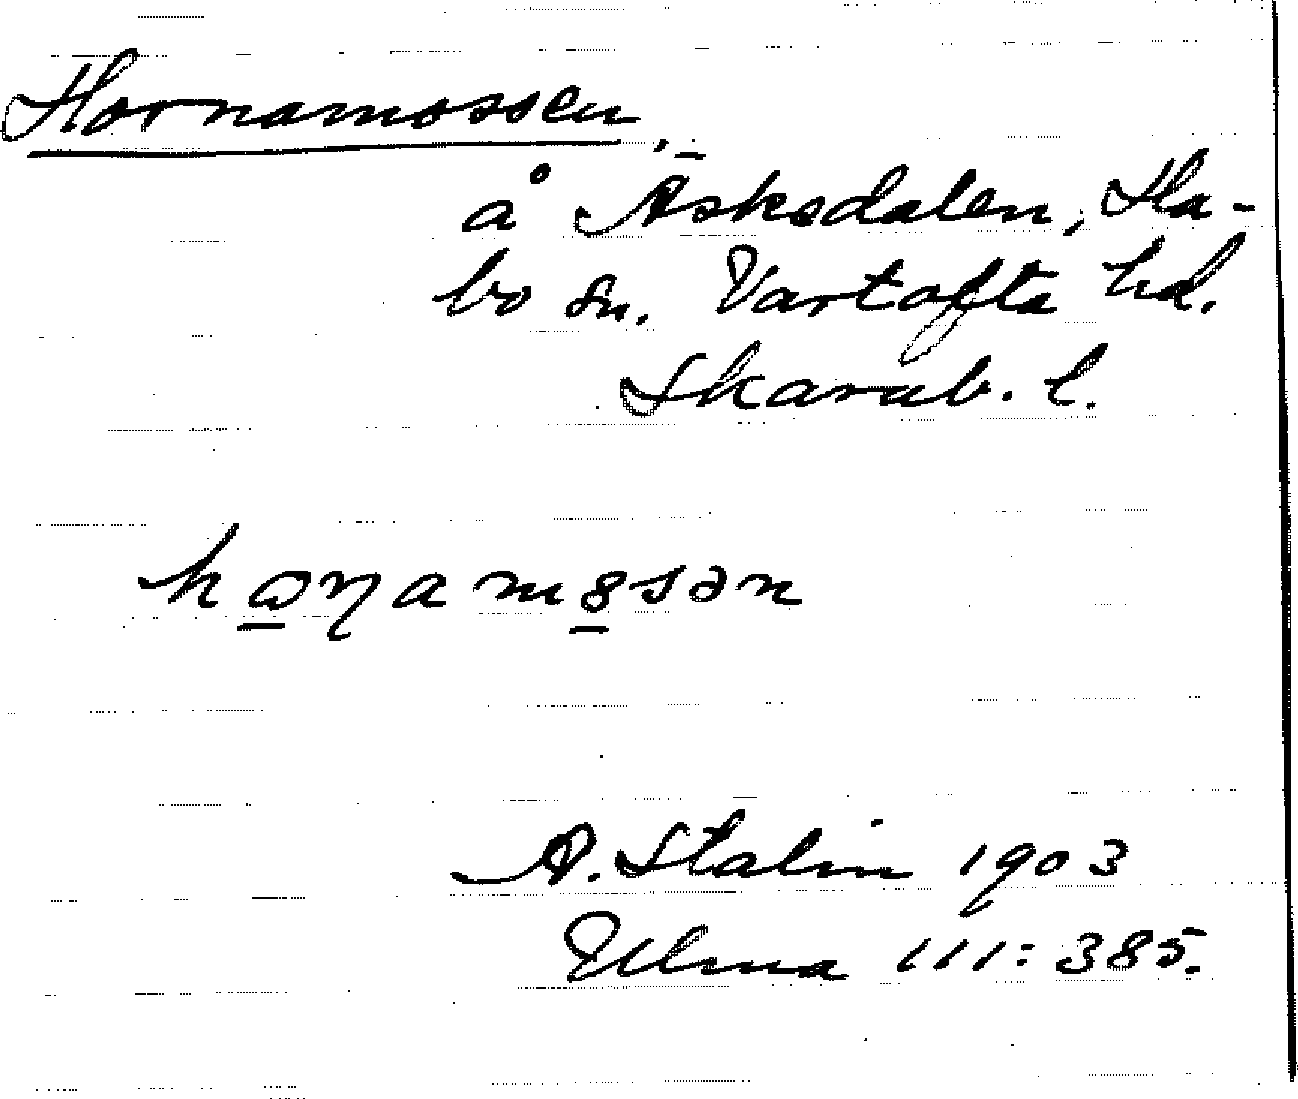 Hornamossen,
å Äsksdalen, Ha-
bo sn. Vartofta hd.
Skarab. l.
A. Stalin 1903
Ulma 111:385.